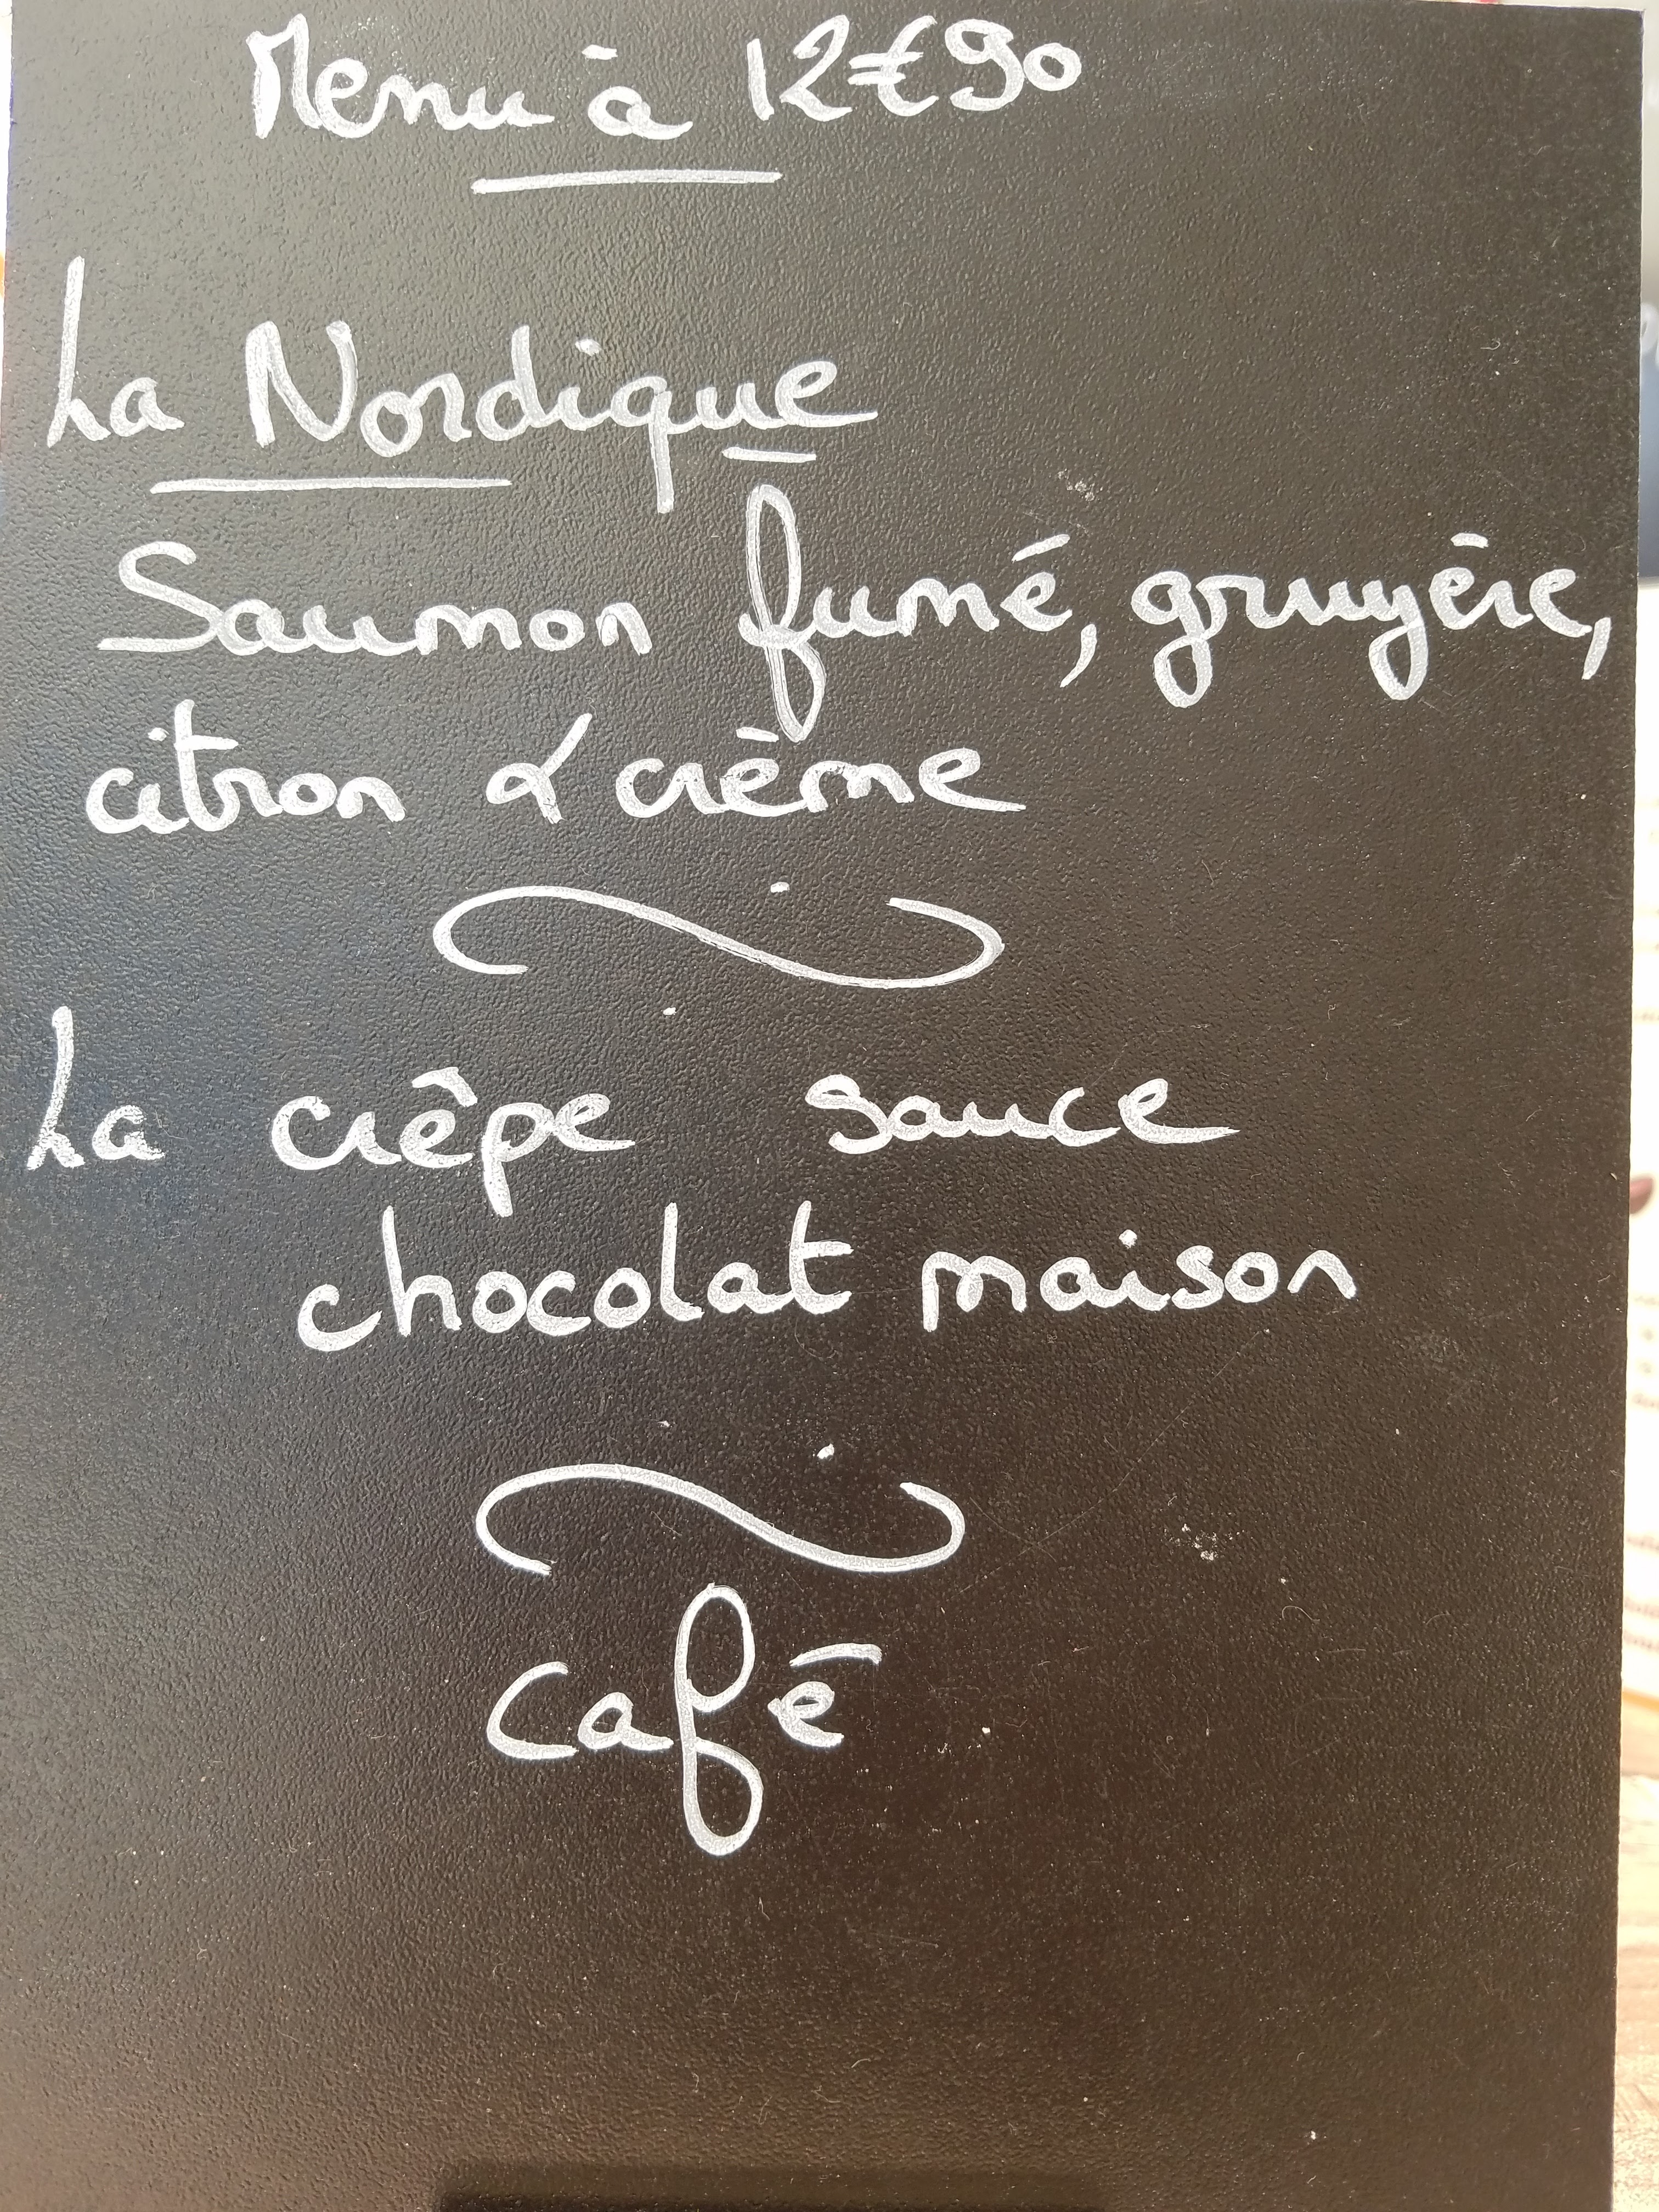 Menu à 12€90
La Nordique
Saumon fumé, gruyère,
citron & crème
La crêpe sauce
chocolat maison
café